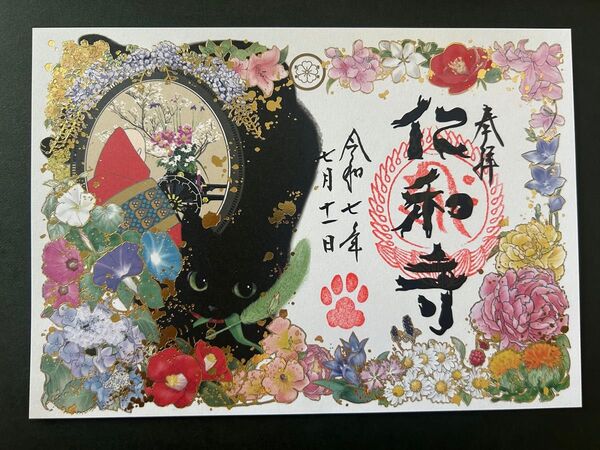 奉拝
仁和寺
令和七年
七月十一日